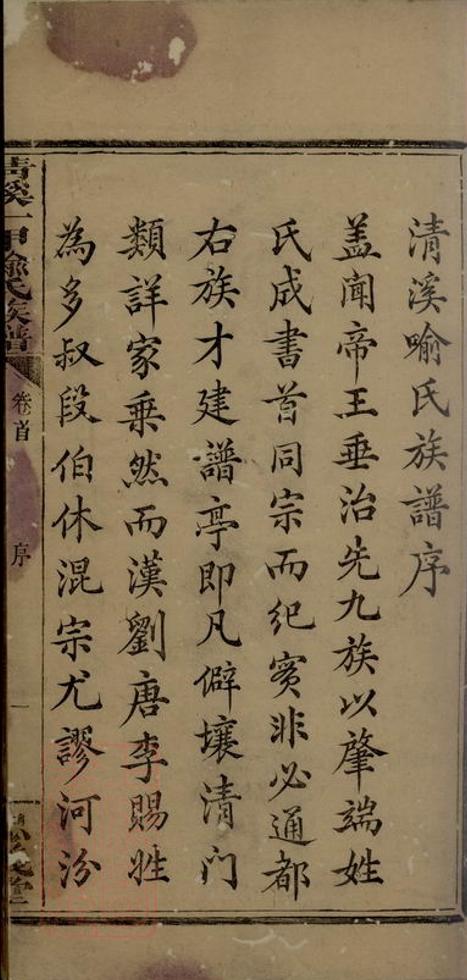 清溪喻氏族譜序
盖聞帝王垂治先九族以肇端姓
氏成書首同宗而紀實非必通都
右族才建譜亭即凡僻壤清门
類詳家乗然而漢劉唐李賜姓
為多叔段伯休混宗尤謬河汾
清溪一甲喻氏族譜
卷首
序
一